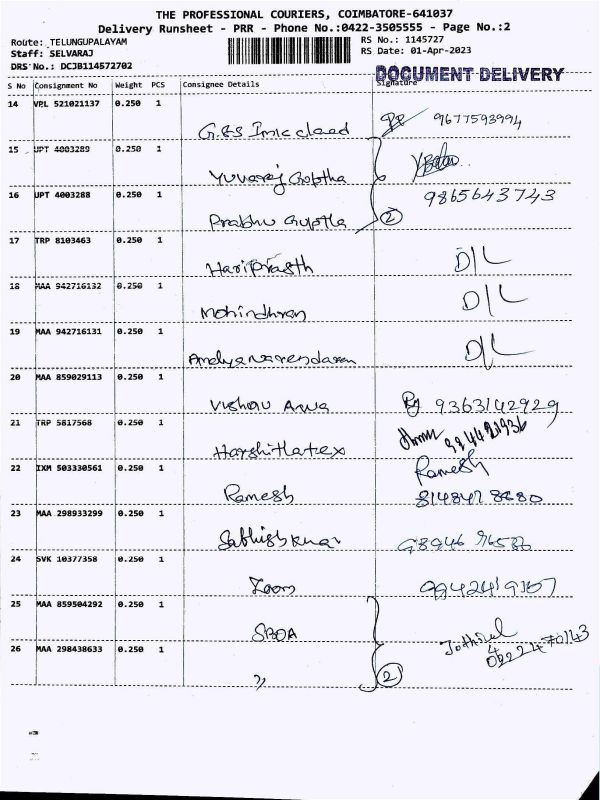 THE PROFESSIONAL COURIERS, COIMBATORE-641037
Delivery Runsheet - PRR - Phone No.:0422-3505555 - Page No.:2
Route: TELUNGUPALAYAM
RS No.: 1145727
Staff: SELVARAJ
RS Date: 01-Apr-2023
DRS No.: DCJB114572702
DOCUMENT DELIVERY
S No Consignment No Weight PCS Consignee Details Signature
14 VPL 521021137 0.250 1
9677593994
15 UPT 4003289 0.250 1
Yuvaraj Guptha
16 UPT 4003288 0.250 1
9865643743
Prabhu Guptha 2
17 TRP 8103463 0.250 1
Hariprasth D/L
18 MAA 942716132 0.250 1
Mohindhran D/L
19 MAA 942716131 0.250 1
D/L
20 MAA 859029113 0.250 1
9363142929
21 TRP 5817568 0.250 1
Harshitlatex
22 IXM 503330561 0.250 1
Ramesh
Ramesh
23 MAA 298933299 0.250 1
24 SVK 10377358 0.250 1
Zoom
25 MAA 859504292 0.250 1
SBOA
26 MAA 298438633 0.250 1
" 2